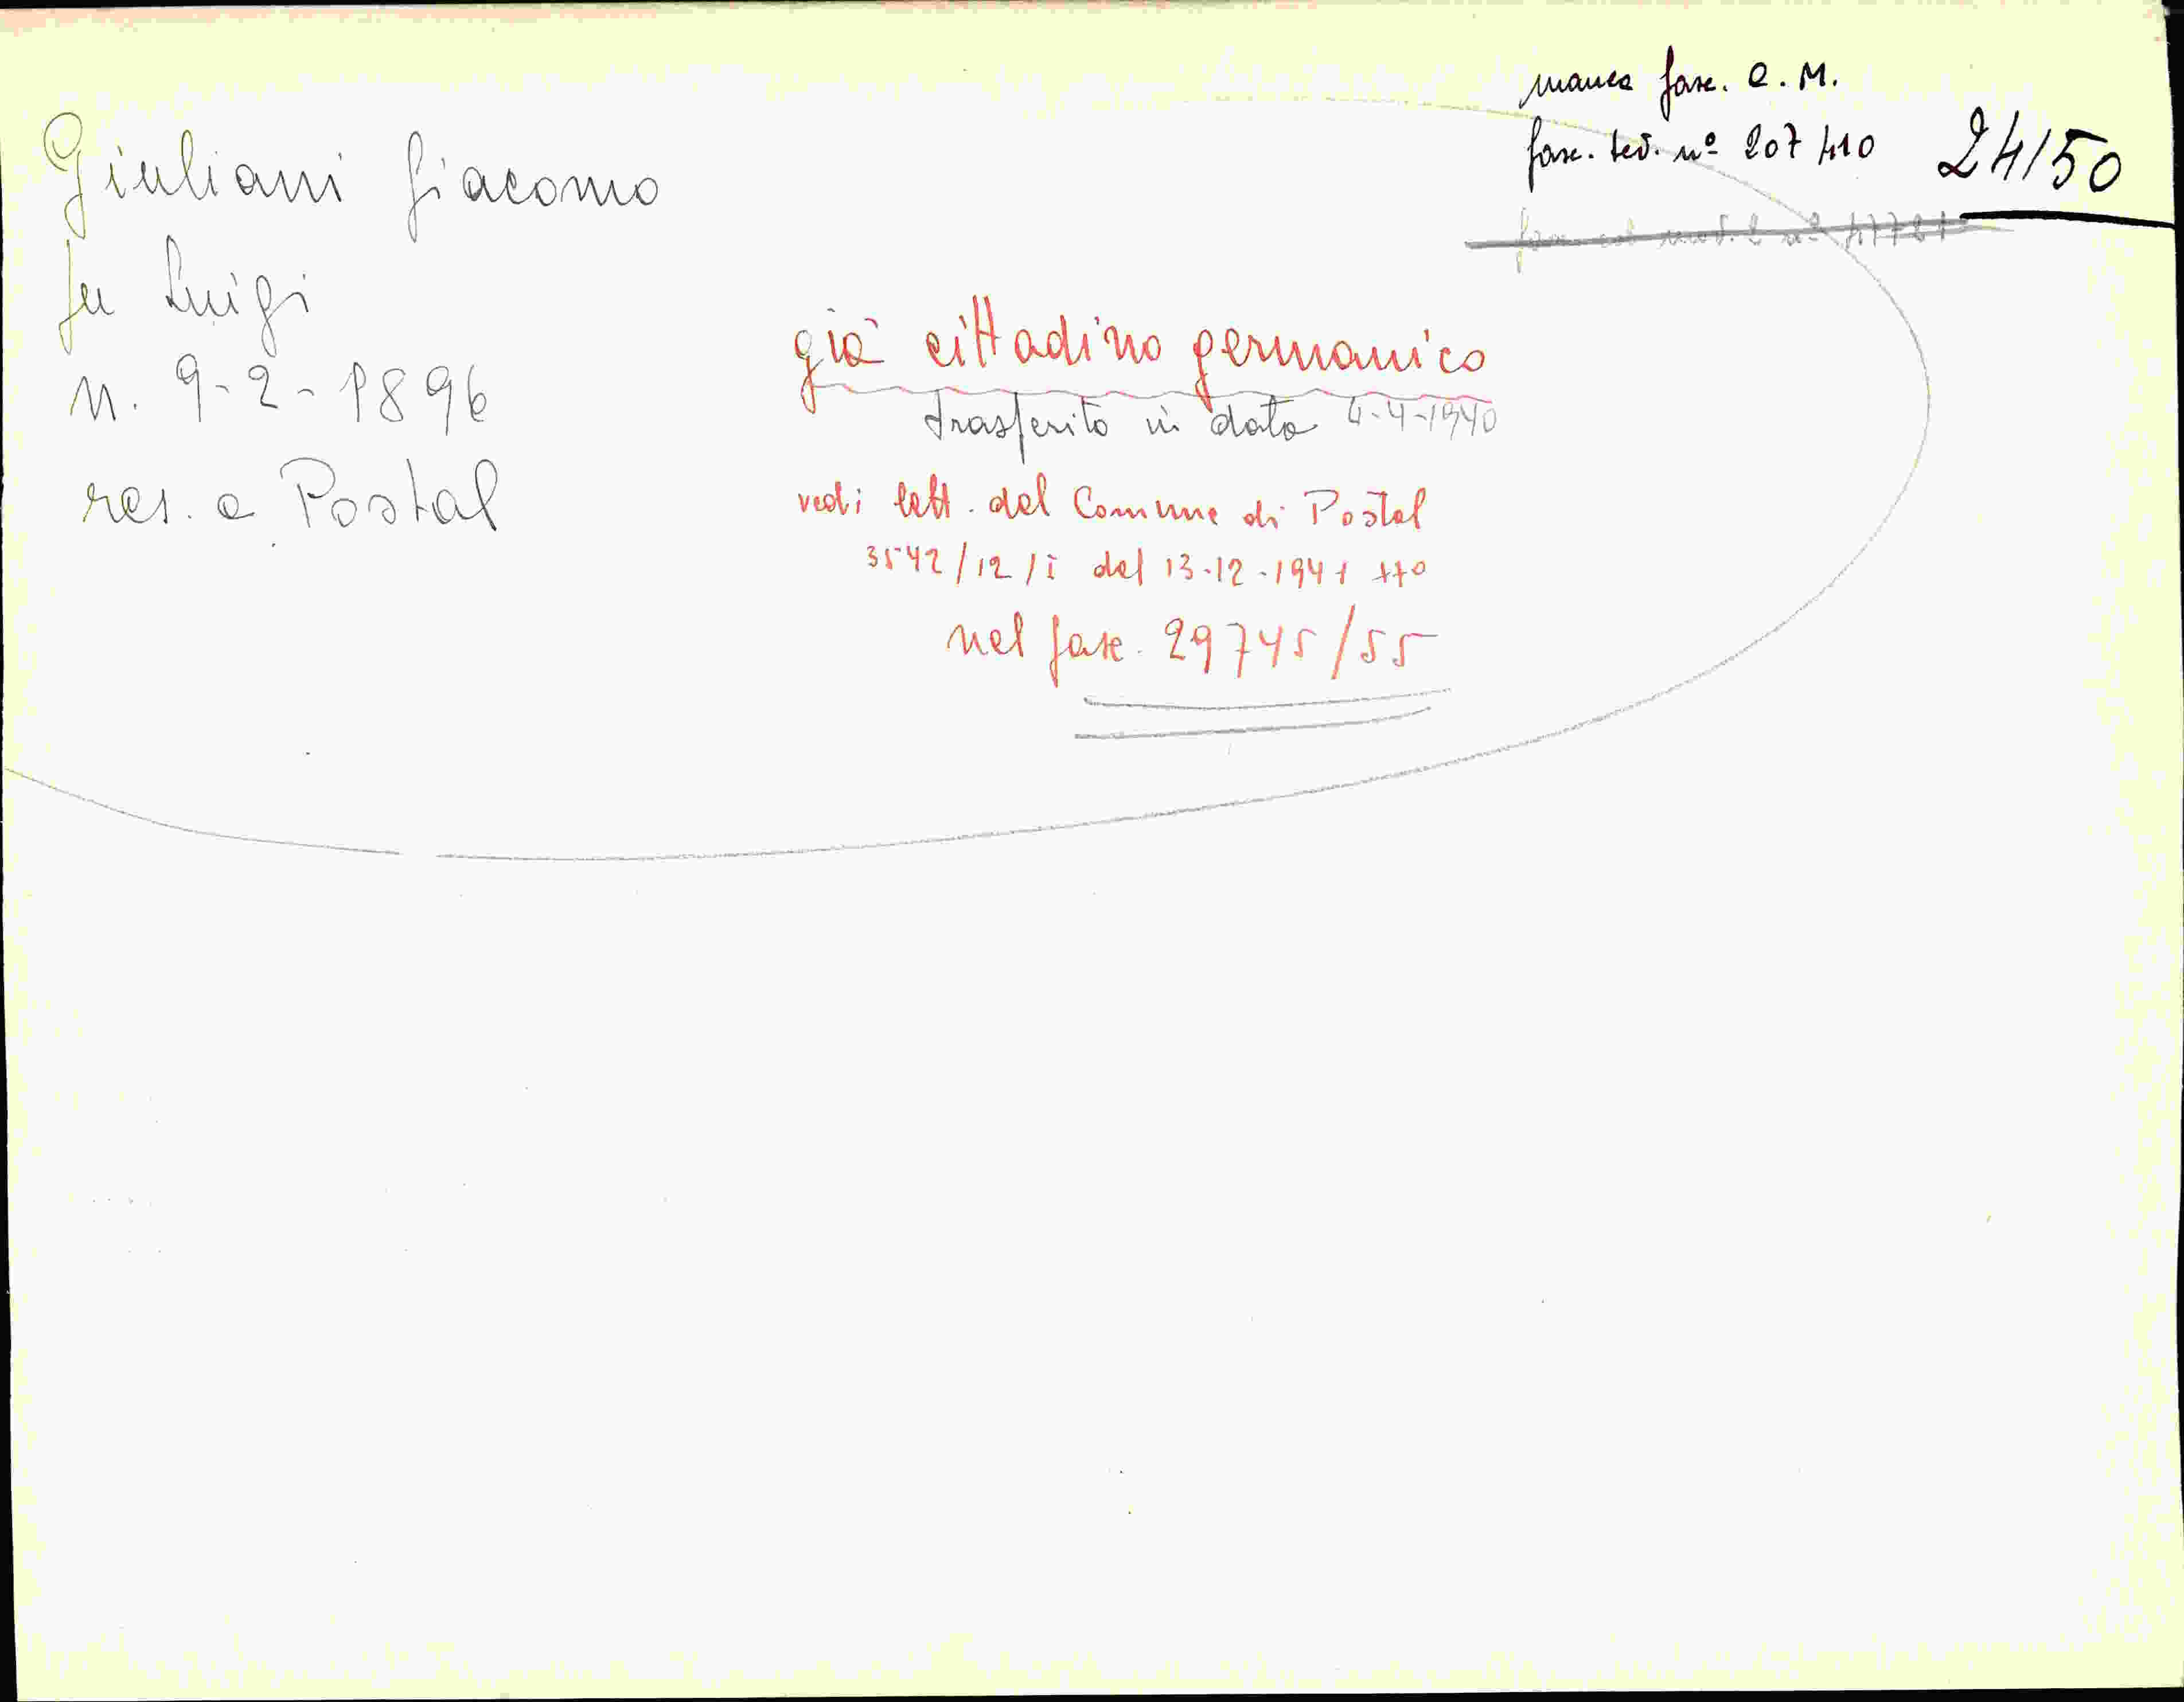 manca fasc. C. M.
fasc. ted. nº 207410
24150
Giuliani Giacomo
fu Luigi
n. 9-2-1896
res. a Postal
già cittadino germanico
trasferito in data 4-4-1940
vedi lett. del Comune di Postal
3542/12/I del 13-12-1941
nel fasc. 29745/55